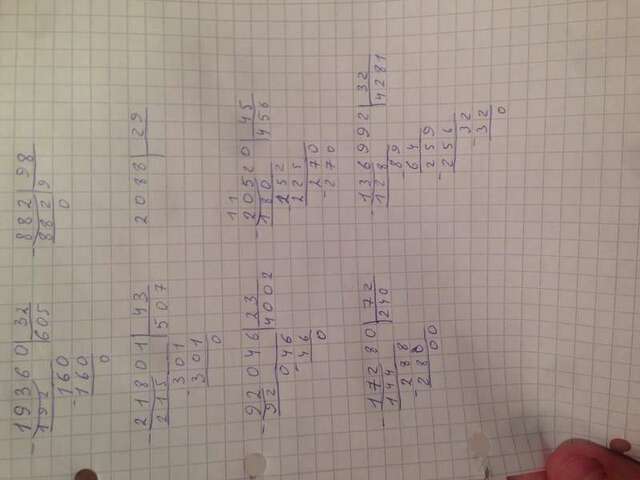 -19360|32
192 605
-160
-160
0
-882|98
882 9
0
-21801|43
215 507
-301
301
0
2088|29
-92046|23
92 4002
046
-46
0
11
-20520|45
180 456
-252
225
270
-270
0
-17280|72
144 240
288
-288
00
-136992|32
128 4281
-89
64
259
-256
32
-32
0